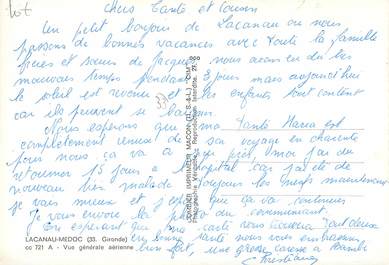 Chers Tante et Cousin
Un petit bonjour de Lacanau ou nous
passons de bonnes vacances avec toute la famille
frères et sœurs de Jacques nous avons eu du
mauvais temps pendant 8 jours mais aujourd'hui
le soleil est revenu et les enfants tout content
car ils peuvent se baigner
Nous esperons que ma Tante Maria est
complètement remise de son voyage en charente
pour nous ça va à peu près moi j'ai du
retourner 15 jours à l'hôpital car j'ai été de
nouveau bien malade toujours les nerfs maintenant
je vais mieux et j'espère que ça va continuer
Je vous envoie la photo du communiant
En esperant que ma carte vous trouvera tout deux
en bonne santé nous vous embrassons
bien fort, une grosse caresse à
Christiane
LACANAU-MEDOC (33. Gironde)
cc 721 A - Vue générale aérienne
COMBIER IMPRIMEUR MACON (S.-&-L.) "CIM"